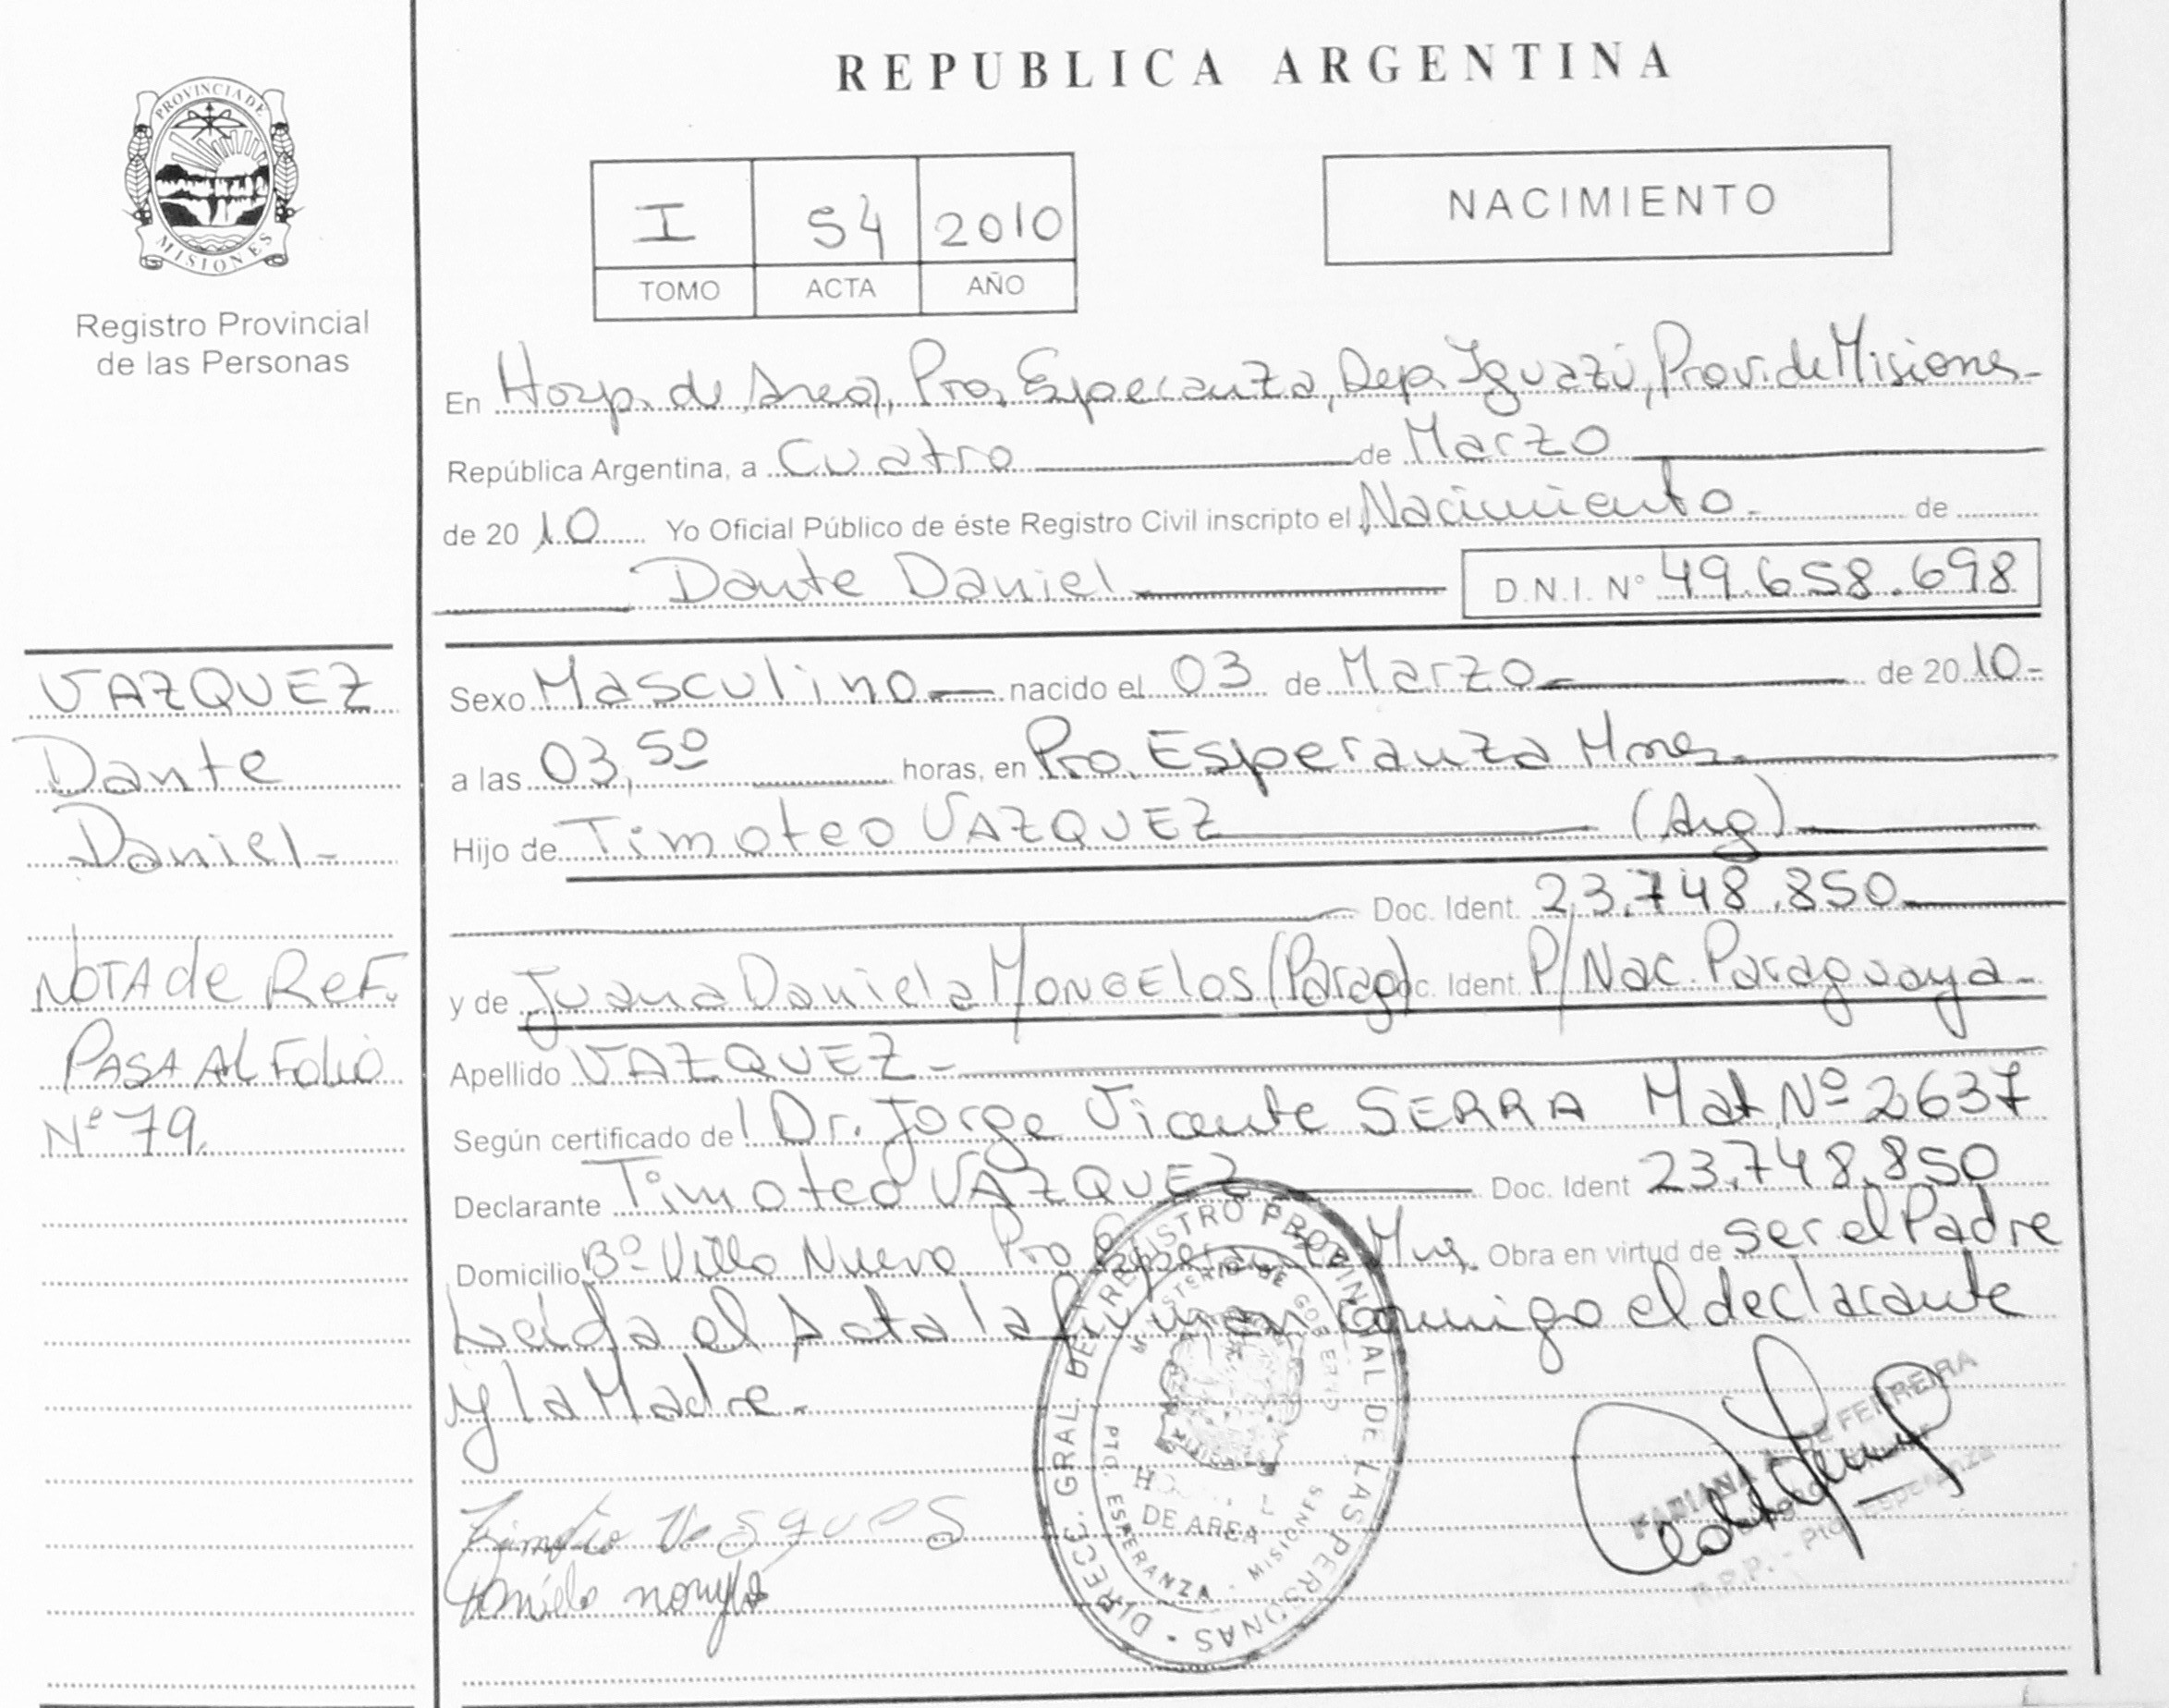 PROVINCIA DE
MISIONES
Registro Provincial
de las Personas
REPUBLICA ARGENTINA
I 54 2010
TOMO ACTA AÑO
NACIMIENTO
En Hosp. de Area, Pto. Esperanza, Dep. Iguazú, Prov. de Misiones-
República Argentina, a Cuatro de Marzo
de 2010 Yo Oficial Público de éste Registro Civil inscripto el Nacimiento- de
Dante Daniel D.N.I. N° 49.658.698
VAZQUEZ
Dante
Daniel-
NOTA de Ref.
PASA Al Folio
Nº 79.
Sexo Masculino nacido el 03 de Marzo- de 2010-
a las 03,50 horas, en Pto. Esperanza Mnes.
Hijo de Timoteo VAZQUEZ (Arg)
Doc. Ident. 23.748.850
y de Juana Daniela MONGELOS (Parag) Doc. Ident. P/ Nac. Paraguaya-
Apellido VAZQUEZ-
Según certificado del Dr. Jorge Vicente SERRA Mat. Nº 2637
Declarante Timoteo VAZQUEZ Doc. Ident 23.748.850
Domicilio Bº Villa Nueva Pto Esperanza Mnes. Obra en virtud de ser el Padre
Leida el Acta la firman conmigo el declarante
y la Madre.
DIRECC. GRAL. DEL REGISTRO PROVINCIAL DE LAS PERSONAS
MINISTERIO DE GOBIERNO
DE AREA
PTO. ESPERANZA - MISIONES
FABIANA DE FERREIRA
R.P.P. - Pto. Esperanza